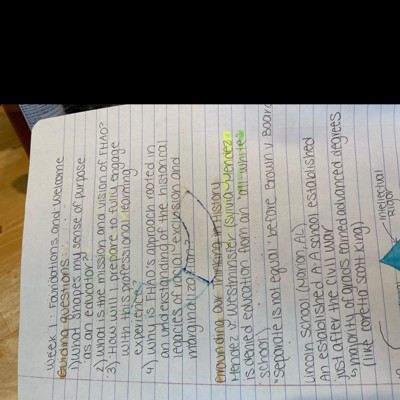 Week 1: Foundations and Welcome
Guiding questions:
1) What shapes my sense of purpose
as an educator?
2) What is the mission and vision of FHAO?
3) How will I prepare to fully engage
with this professional learning
experience?
4) Why is FHAO's approach rooted in
an understanding of the historical
legacies of racial exclusion and
marginalization?
Grounding Our Thinking in History
Mendez v. Westminster (Sylvia Mendez
is denied education from an "all-white"
school)
"Separate is not equal" before Brown v. Board
Lincoln School (Marion, AL)
An established A.A school established
just after the civil war
majority of grads earned advanced degrees
(like Coretta Scott King)
Intellectual
Rigor